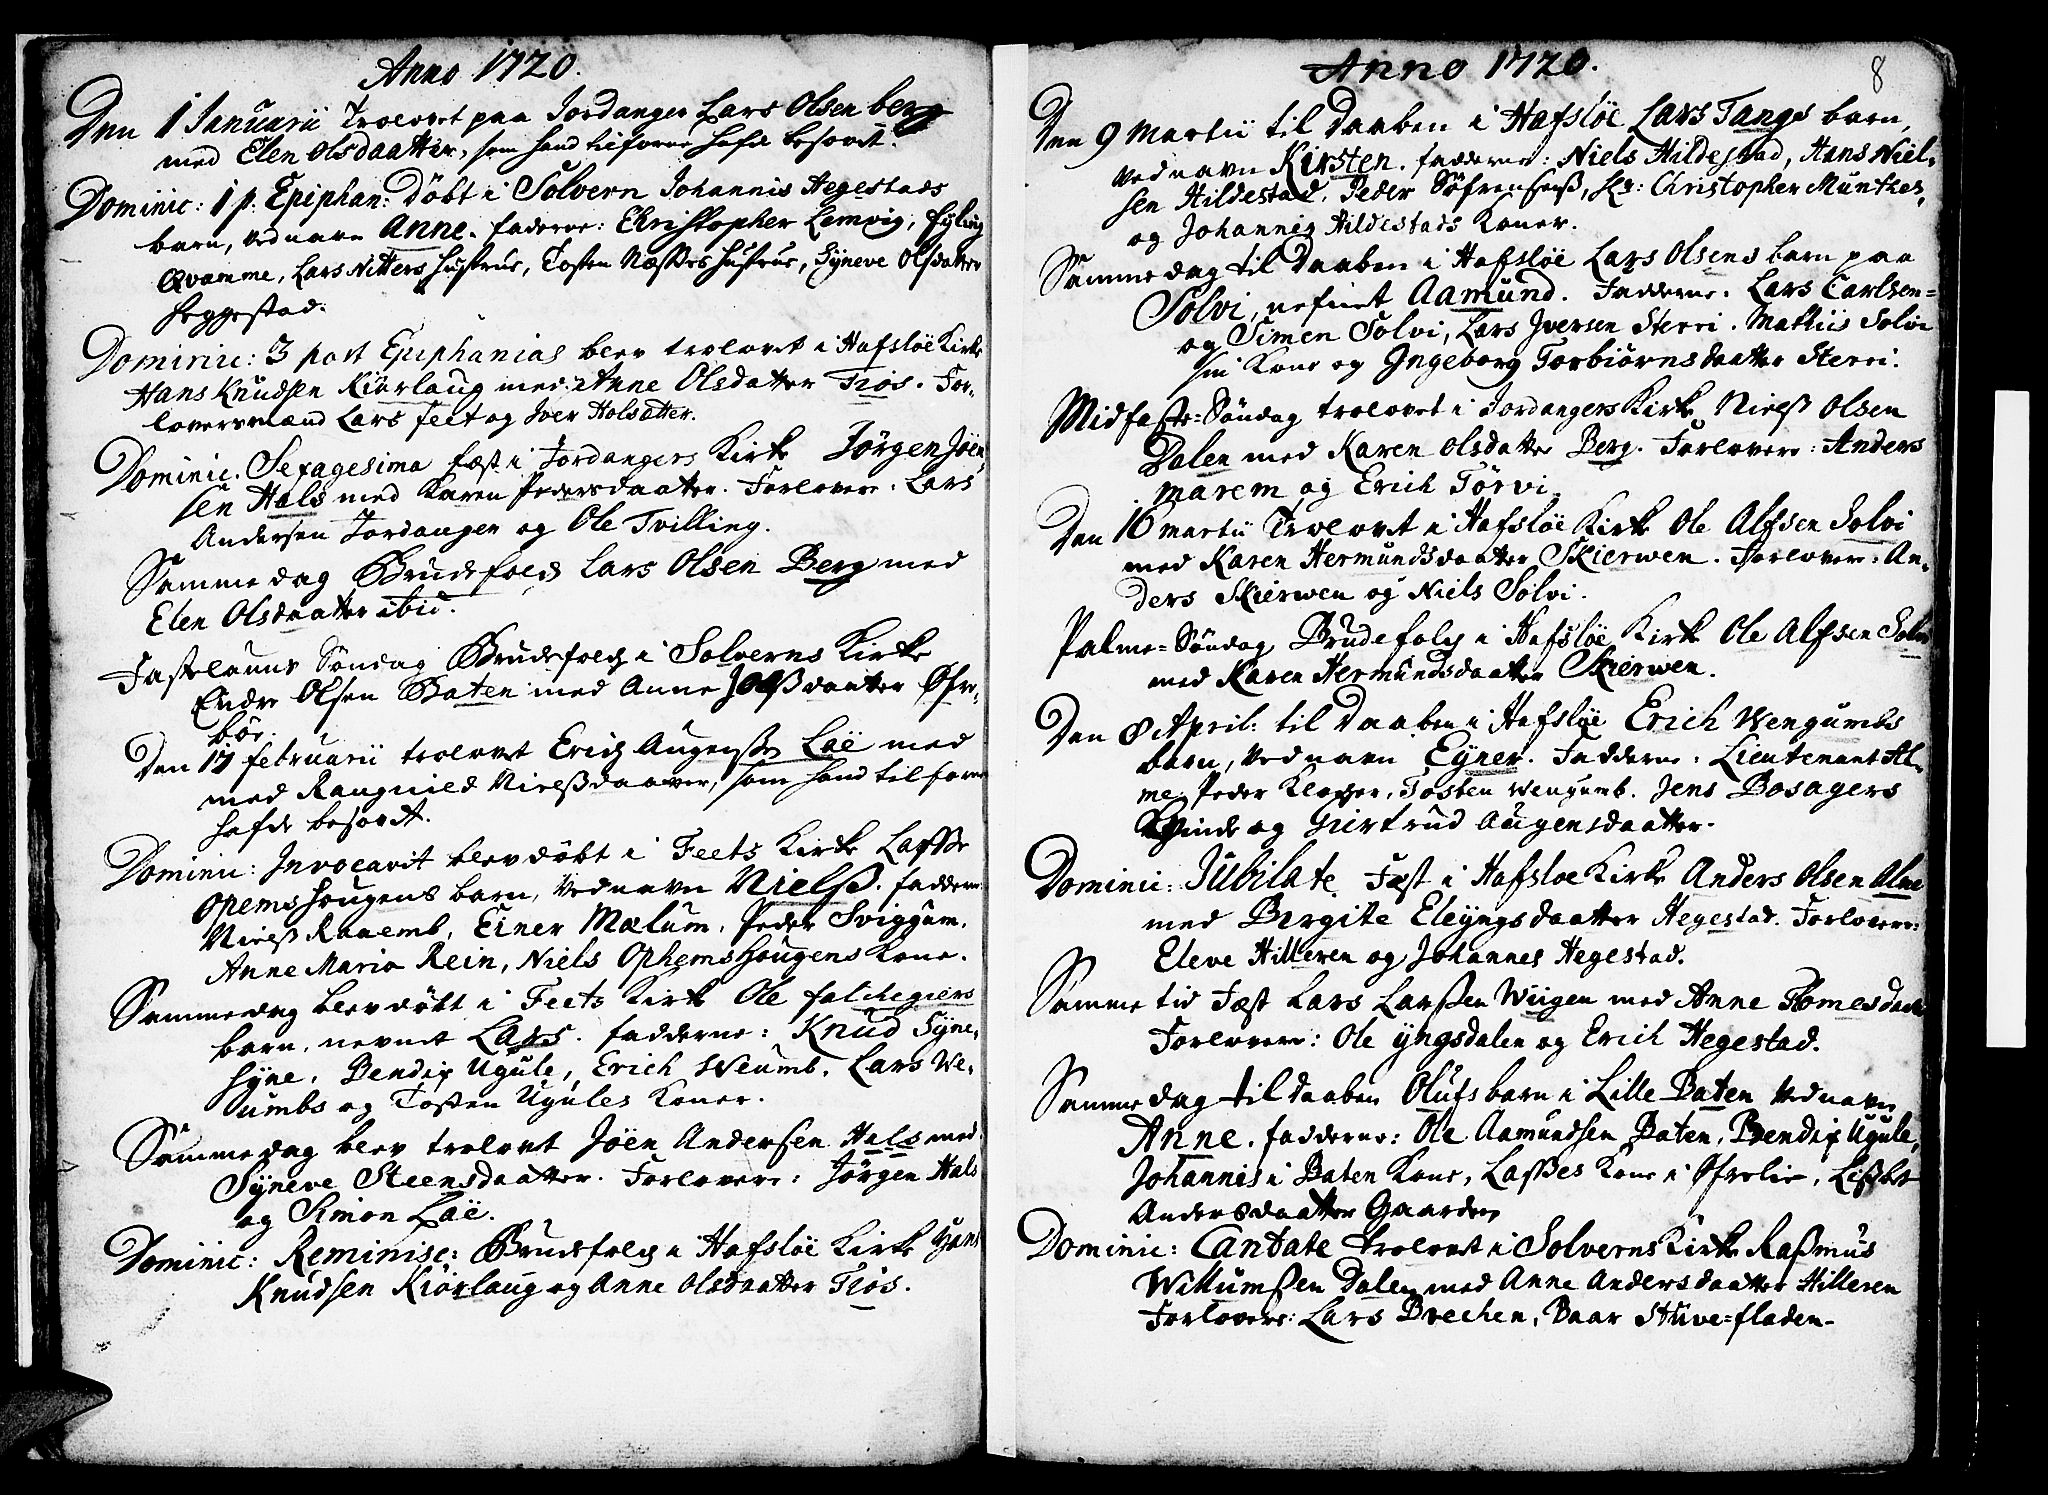 Anno 1720.
Den 1 Januarii Trolovet paa Jordanger Lars Olsen berg
med Elen Olsdaatter, som hand tilforne hafde besovet.
Dominic: 1 p. Epiphan: döbt i Solvern Johannis Hegestads
barn, ved navn Anne. faderne: Christopher Lemvig,
Qvamme, Lars Nitters Hustrue, Tosten Næsses Hustrue, Syneve Olsdatter
Heggestad.
Dominic: 3 post Epiphanias blev trolovet i Hafsløe Kirke
Hans Knudsen Kiörlaug med Anne Olsdatter Tiøs. For-
loversmænd Lars feet og Iver Holsetter.
Dominic. Sexagesima fæst i Jordangers Kirke Jørgen Jöen
sen Hals med Karen Pedersdaatter. Forlovere: Lars
Andersen Jordanger og Ole Tvilling.
Samme dag Brudefolch Lars Olsen Berg med
Elen Olsdaatter ibid.
Fastelauns Söndag Brudefolch i Solverns Kirke
Endre Olsen Baten med Anne daatter Øfre-
bör.
Den 17 februarii trolovet Erich Augensen Lae med
med Raugnild Nielsdaatter, som hand tilforne
hafde besovet.
Dominic: Invocavit blev döbt i Feets Kirke Lasse
Opems Hougens barn, ved navn Nielß. fadderne:
Nielß Raaemb, Einer Mælum, Peder Sviggum,
Anne Maria Rein, Niels Ophems Hougens Kone.
Samme dag blev döbt i Feets Kirke Ole falchegiers
barn, nevnet Lars. fadderne: Knud Syne-
Hyne, Bendix Ugule, Erich Weumb, Lars We-
umbs og Tosten Ugules Koner.
Samme dag blev trolovet Jöen Andersen Hals med
Syneve Steensdaatter. Forlovere: Jørgen Hals
og Simon Lae.
Dominic: Reminisc: Brudefolch i Hafslöe Kirke Hans
Knudsen Kiörlaug og Anne Olsdaatter Tiös.
Anno 1720. 8
Den 9 Martii til daaben i Hafslöe Lars Tangs barn,
ved navn Kirsten. fadderne: Niels Hildestad, Hans Niel-
sen Hildestad, Peder Söfrensens, Christopher Munthes,
og Johannis Hildestads Koner.
Samme dag til daaben i Hafslöe Lars Olsens barn paa
Solvi, nefnet Aamund. Fadderne: Lars Carlsen
og Simen Solvi, Lars Iversen Sterri. Mathiis Solvi
sin Kone og Ingeborg Torbiörnsdaatter Sterri.
Midfaste-Söndag trolovet i Jordangers Kirke Nielß Olsen
Dalen med Karen Olsdatter Berg. Forlovere: Anders
Marem og Erich Törvi.
Den 16 Martii Trolovet i Hafslöe Kirke Ole Alfsen Solvi
med Karen Hermundsdaatter Skierwen. Forlovere: An-
ders Skierwen og Niels Solvi.
Palme-Söndag Brudefolch i Hafslöe Kirke Ole Alfsen Solvi
med Karen Hermundsdaatter Skierwen.
Den 8 April: til daaben i Hafslöe Erich Wengumbs
barn, ved navn Eyner. Fadderne: Lieutenant Al-
me, Peder Klocker, Tosten Wengumb. Jens Bosagers
Qvinde og Giertrud Augensdaatter.
Dominic: Jubilate Fæst i Hafsloe Kirke Anders Olsen Alme
med Birgite Eleyngsdaatter Hegestad. Forlovere:
Eleve Hilleren og Johannes Hegestad.
Samme tid Fæst Lars Larsen Wiigen med Anne Tomesdaatter
Forlovere: Ole yngsdalen og Erich Hegestad.
Samme dag til daaben Olufs barn i Lille Baten ved navn
Anne. fadderne: Ole Aamundsen Baten, Bendix Ugule,
Johannis i Baten Kone, Laßes Kone i Øfrelie, Lisbet
Andersdaatter Gaarden
Dominic: Cantate trolovet i Solverns Kirke Raßmus
Willumsen Dalen med Anne Andersdaatter Hilleren
Forlovere: Lars Brechen, Baar Stuve-fladen.